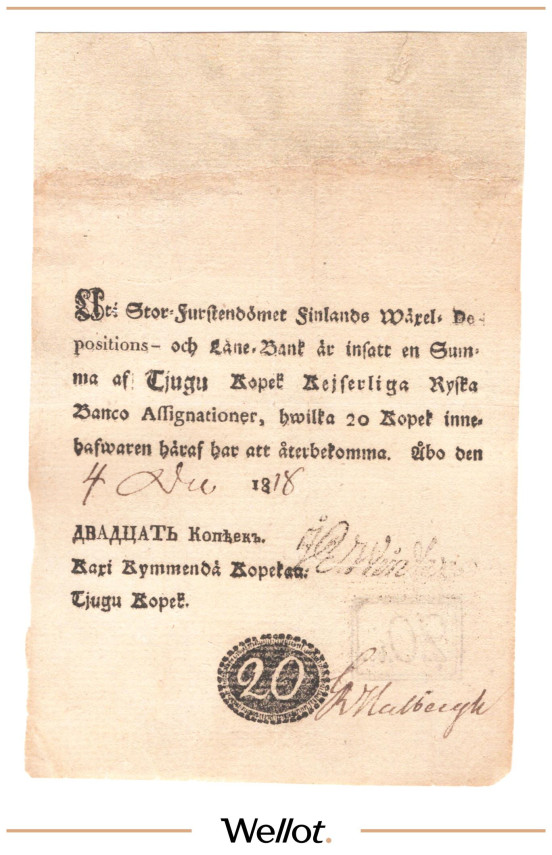 Uti Stor-Furstendömet Finlands Wäxel- De-
positions- och Låne-Bank är insatt en Sum-
ma af Tjugu Kopek Kejserliga Ryska
Banco Assignationer, hwilka 20 Kopek inne-
hafwaren häraf har att återbekomma. Åbo den
4 Dec 1818
ДВАДЦАТЬ Копѣекъ.
Kaxi Kymmendä Kopekaa.
Tjugu Kopek.
20
20
Wellot.